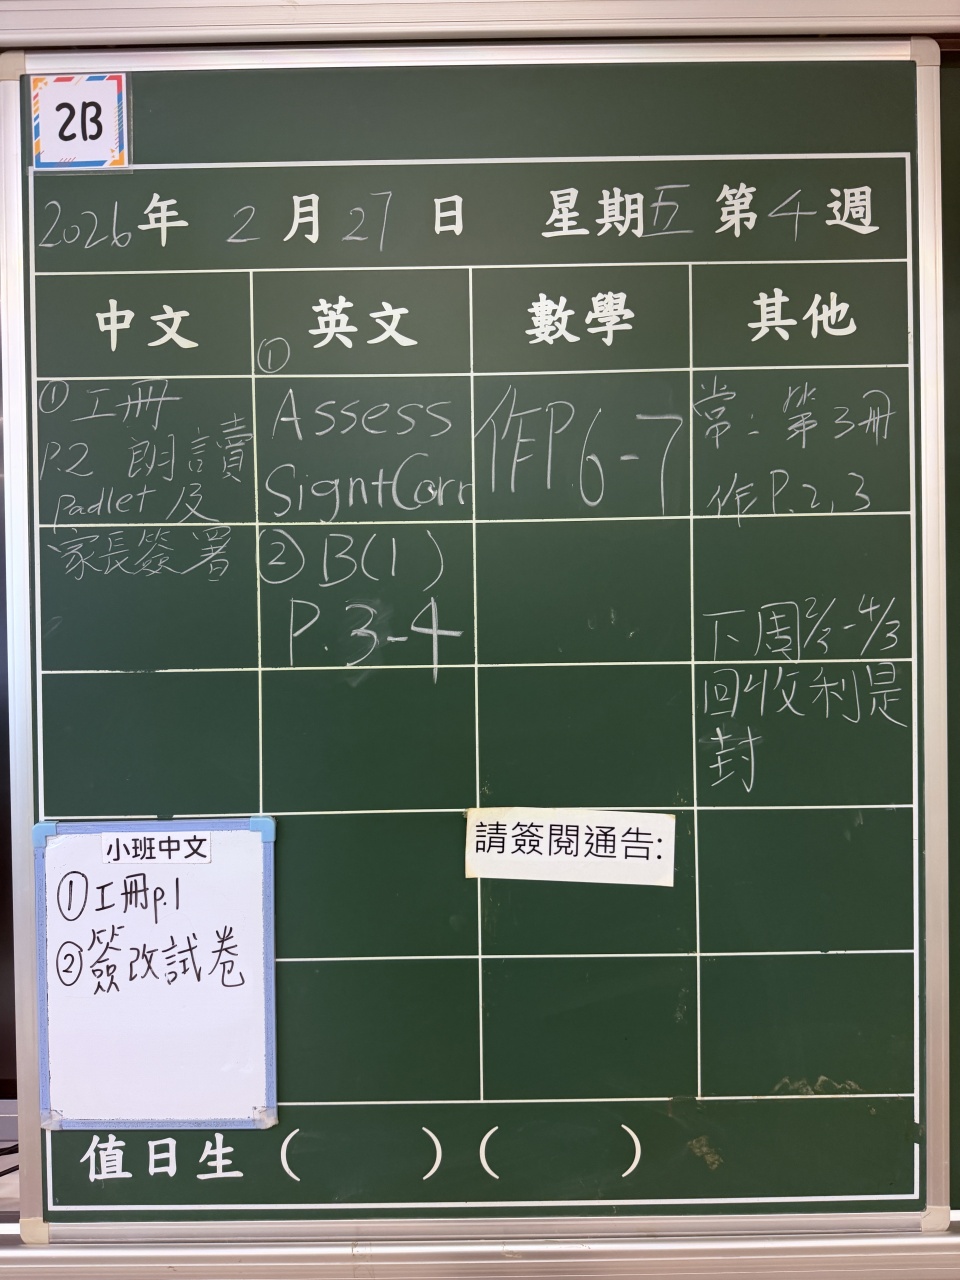 2B
2026年 2月27日 星期五 第4週
中文
① 工冊
P.2 朗讀
Padlet 及
家長簽署
英文
① Assess
Sign+Corr
② B(1)
P.3-4
數學
作P.6-7
其他
常：第3冊
作P.2,3
下周2/3-4/3
回收利是
封
小班中文
① 工冊p.1
② 簽改試卷
請簽閱通告:
值日生 （ ）（ ）